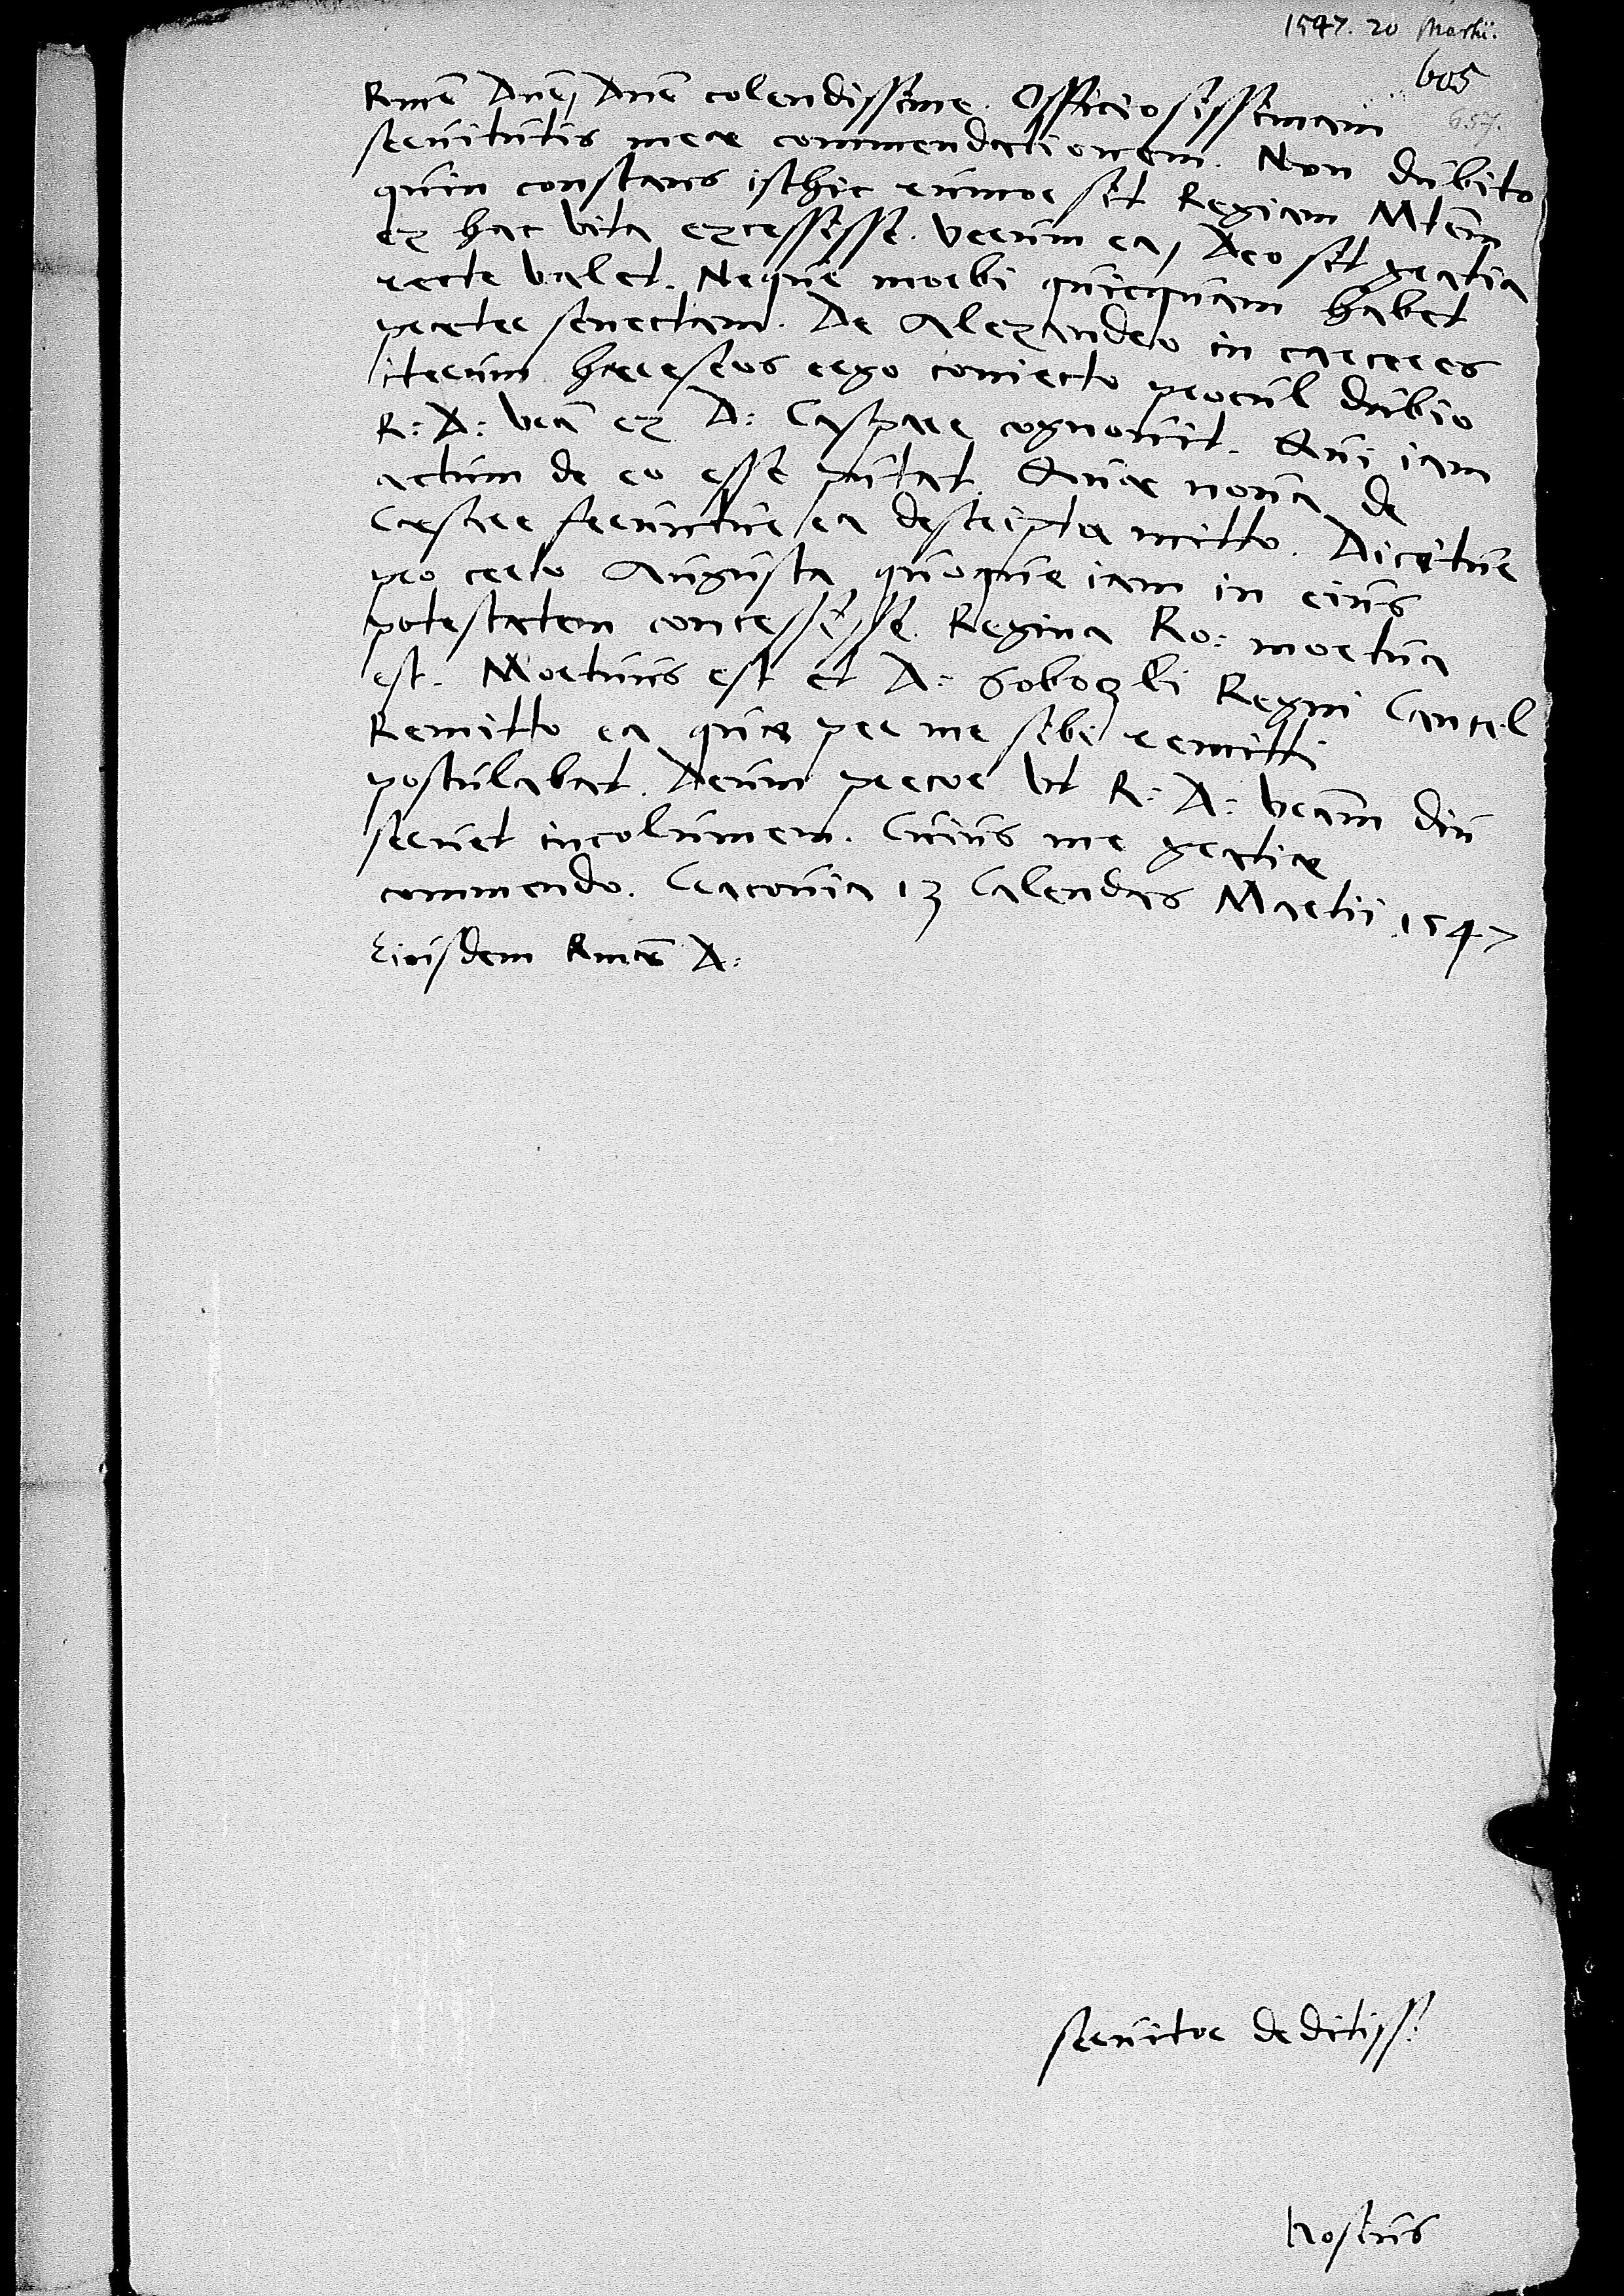 1547. 20 Martii.
605
657.
Rme Dne, Dne colendissime. Officiosissimam
servitutis meae commendationem. Non dubito
quin constans isthic rumor sit Regiam Mtem
ex hac vita excessisse. Verum ea, Deo sit gratia
recte valet. Neque morbi quicquam habet
praeter senectam. De Alexandro in carceres
iterum haereseos ergo coniecto procul dubio
R: D: vra ex D: Caspare cognovit. Qui iam
actum de eo esse putat. Quae nova de
Caesare feruntur ea descripta mitto. Dicitur
pro certo Augusta quoque iam in eius
potestatem concessisse. Regina Ro: mortua
est. Mortuus est et D: Soboczki Regni Cancel
Remitto ea quae per me sibi remitti
postulabat. Deum precor ut R: D: vram diu
servet incolumem. Cuius me gratiae
commendo. Cracovia 13 Calendas Martii 1547
Eiusdem Rmae D:
servitor deditiss:
Hosius